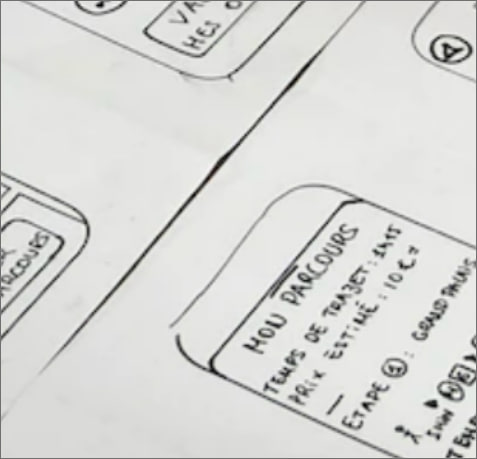 MES
PARCOURS
MON PARCOURS
TEMPS DE TRAJET : 1H15
PRIX ESTIMÉ : 10 € =
ETAPE ① : GRAND PALAIS